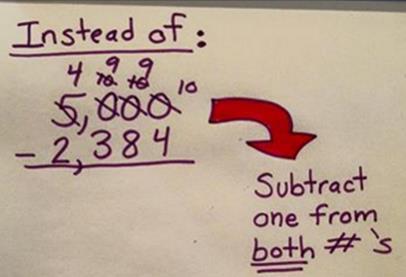 Instead of:
4 9 9
10 10 10
5,000
- 2,384
Subtract
one from
both #'s